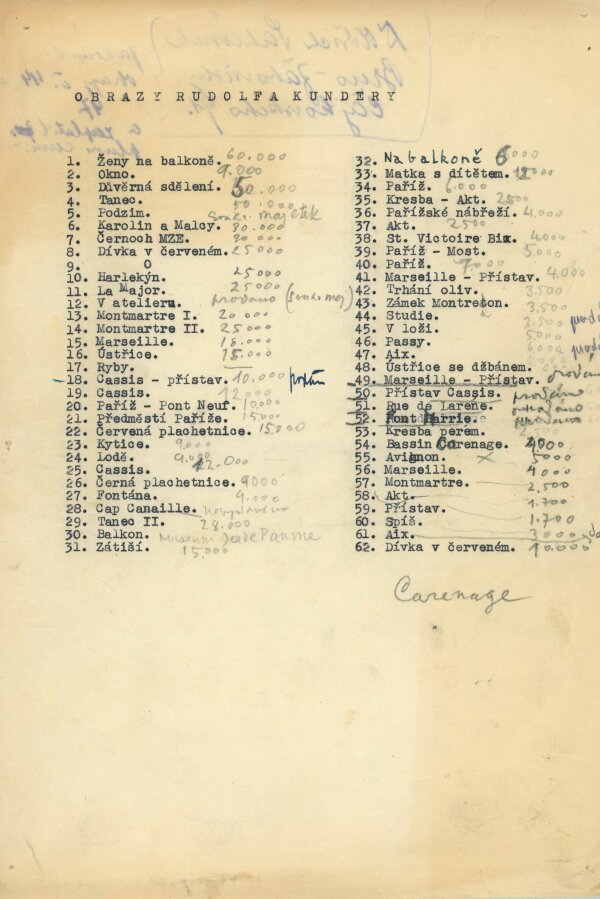 OBRAZY RUDOLFA KUNDERY
1. Ženy na balkoně. 60.000
2. Okno. 9.000
3. Důvěrná sdělení. 50.000
4. Tanec. 50.000
5. Podzim. soukr. majetek
6. Karolin a Maloy. 30.000
7. Černoch MZE.
8. Dívka v červeném. 25000
9. O
10. Harlekýn. 25000
11. La Major. 25000
12. V atelieru. prodáno (soukr. maj)
13. Montmartre I. 20 000
14. Montmartre II. 25000
15. Marseille. 18.000
16. Ústřice. 15.000
17. Ryby.
18. Cassis - přístav. 10.000
19. Cassis. 12000
20. Paříž - Pont Neuf. 10.000
21. Předměstí Paříže. 15000
22. Červená plachetnice. 15.000
23. Kytice. 9000
24. Lodě. 9.000
25. Cassis. 12.000
26. Černá plachetnice. 9000
27. Fontána. 9.000
28. Cap Canaille.
29. Tanec II. 28.000
30. Balkon. Museum Jeu de Paume
31. Zátiší. 15.000
32. Na balkoně 6000
33. Matka s dítětem. 12000
34. Paříž. 6.000
35. Kresba - Akt. 2500
36. Pařížské nábřeží. 4.000
37. Akt. 2500
38. St. Victoire Bix. 4.000
39. Paříž - Most. 5.000
40. Paříž. 7000
41. Marseille - Přístav. 4.000
42. Trhání oliv. 3.500
43. Zámek Montreton. 3.500
44. Studie.
45. V loži.
46. Passy.
47. Aix.
48. Ústřice se džbánem.
49. Marseille - Přístav. prodáno
50. Přístav Cassis. prodáno
51. Rue de Larene.
52. Pont Marrie. prodáno
53. Kresba perem.
54. Bassin Carenage. 4000
55. Avignon. 5000
56. Marseille. 4000
57. Montmartre. 2,500
58. Akt.
59. Přístav. 1.700
60. Spíš. 1.700
61. Aix. 3000
62. Dívka v červeném. 10.000
Carenage